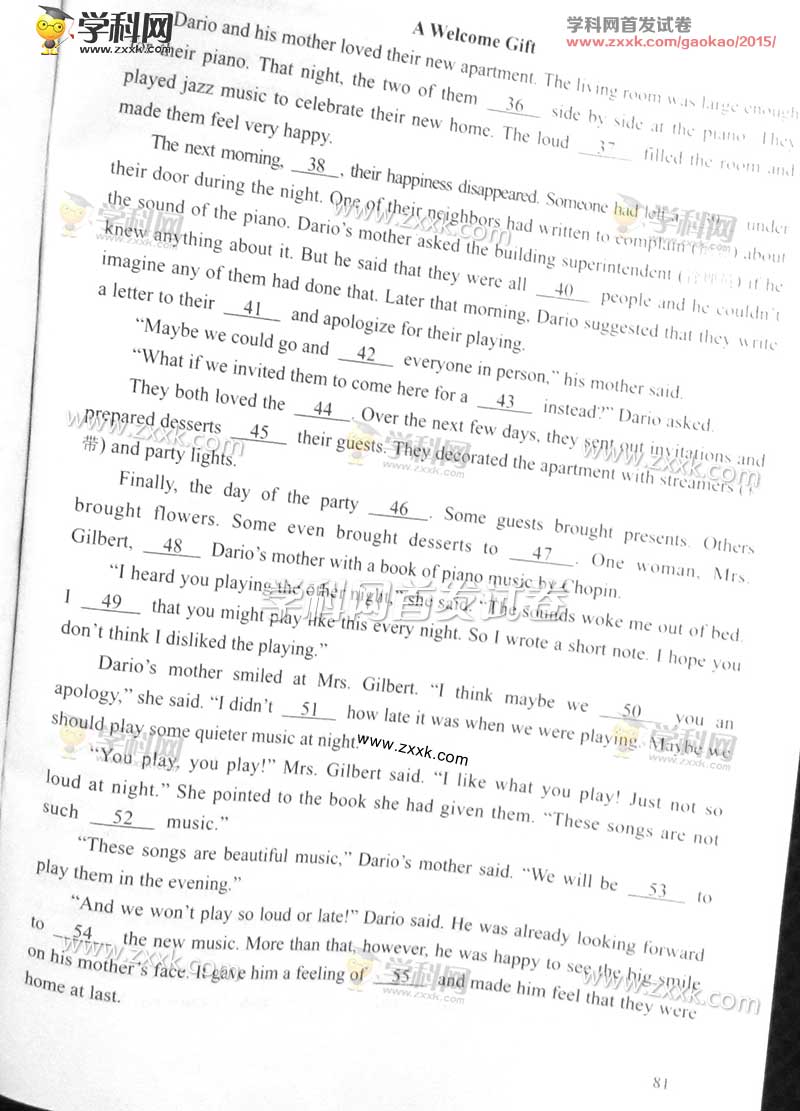 学科网
www.zxxk.com
学科网首发试卷
www.zxxk.com/gaokao/2015/
A Welcome Gift
Dario and his mother loved their new apartment. The living room was large enough
their piano. That night, the two of them 36 side by side at the piano. They
played jazz music to celebrate their new home. The loud 37 filled the room and
made them feel very happy.
The next morning, 38 , their happiness disappeared. Someone had left a 39 under
their door during the night. One of their neighbors had written to complain ( ) about
the sound of the piano. Dario's mother asked the building superintendent ( ) if he
knew anything about it. But he said that they were all 40 people and he couldn't
imagine any of them had done that. Later that morning, Dario suggested that they write
a letter to their 41 and apologize for their playing.
"Maybe we could go and 42 everyone in person," his mother said.
"What if we invited them to come here for a 43 instead?" Dario asked.
They both loved the 44 . Over the next few days, they sent out invitations and
prepared desserts 45 their guests. They decorated the apartment with streamers (
带) and party lights.
Finally, the day of the party 46 . Some guests brought presents. Others
brought flowers. Some even brought desserts to 47 . One woman, Mrs.
Gilbert, 48 Dario's mother with a book of piano music by Chopin.
"I heard you playing the other night," she said. "The sounds woke me out of bed.
I 49 that you might play like this every night. So I wrote a short note. I hope you
don't think I disliked the playing."
Dario's mother smiled at Mrs. Gilbert. "I think maybe we 50 you an
apology," she said. "I didn't 51 how late it was when we were playing. Maybe we
should play some quieter music at night."
"You play, you play!" Mrs. Gilbert said. "I like what you play! Just not so
loud at night." She pointed to the book she had given them. "These songs are not
such 52 music."
"These songs are beautiful music," Dario's mother said. "We will be 53 to
play them in the evening."
"And we won't play so loud or late!" Dario said. He was already looking forward
to 54 the new music. More than that, however, he was happy to see the big smile
on his mother's face. It gave him a feeling of 55 and made him feel that they were
home at last.
81
学科网
www.zxxk.com
www.zxxk.com
学科网
www.zxxk.com
www.zxxk.com
学科网
www.zxxk.com
www.zxxk.com
学科网首发试卷
学科网
www.zxxk.com
www.zxxk.com
学科网
www.zxxk.com
www.zxxk.com
学科网
www.zxxk.com
www.zxxk.com